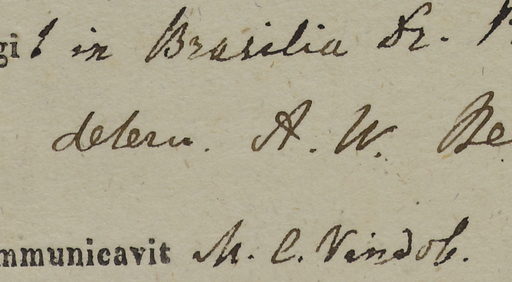 gi t in Brasilia Dr. P
determ. A. W. Be
mmunicavit M. C. Vindob.